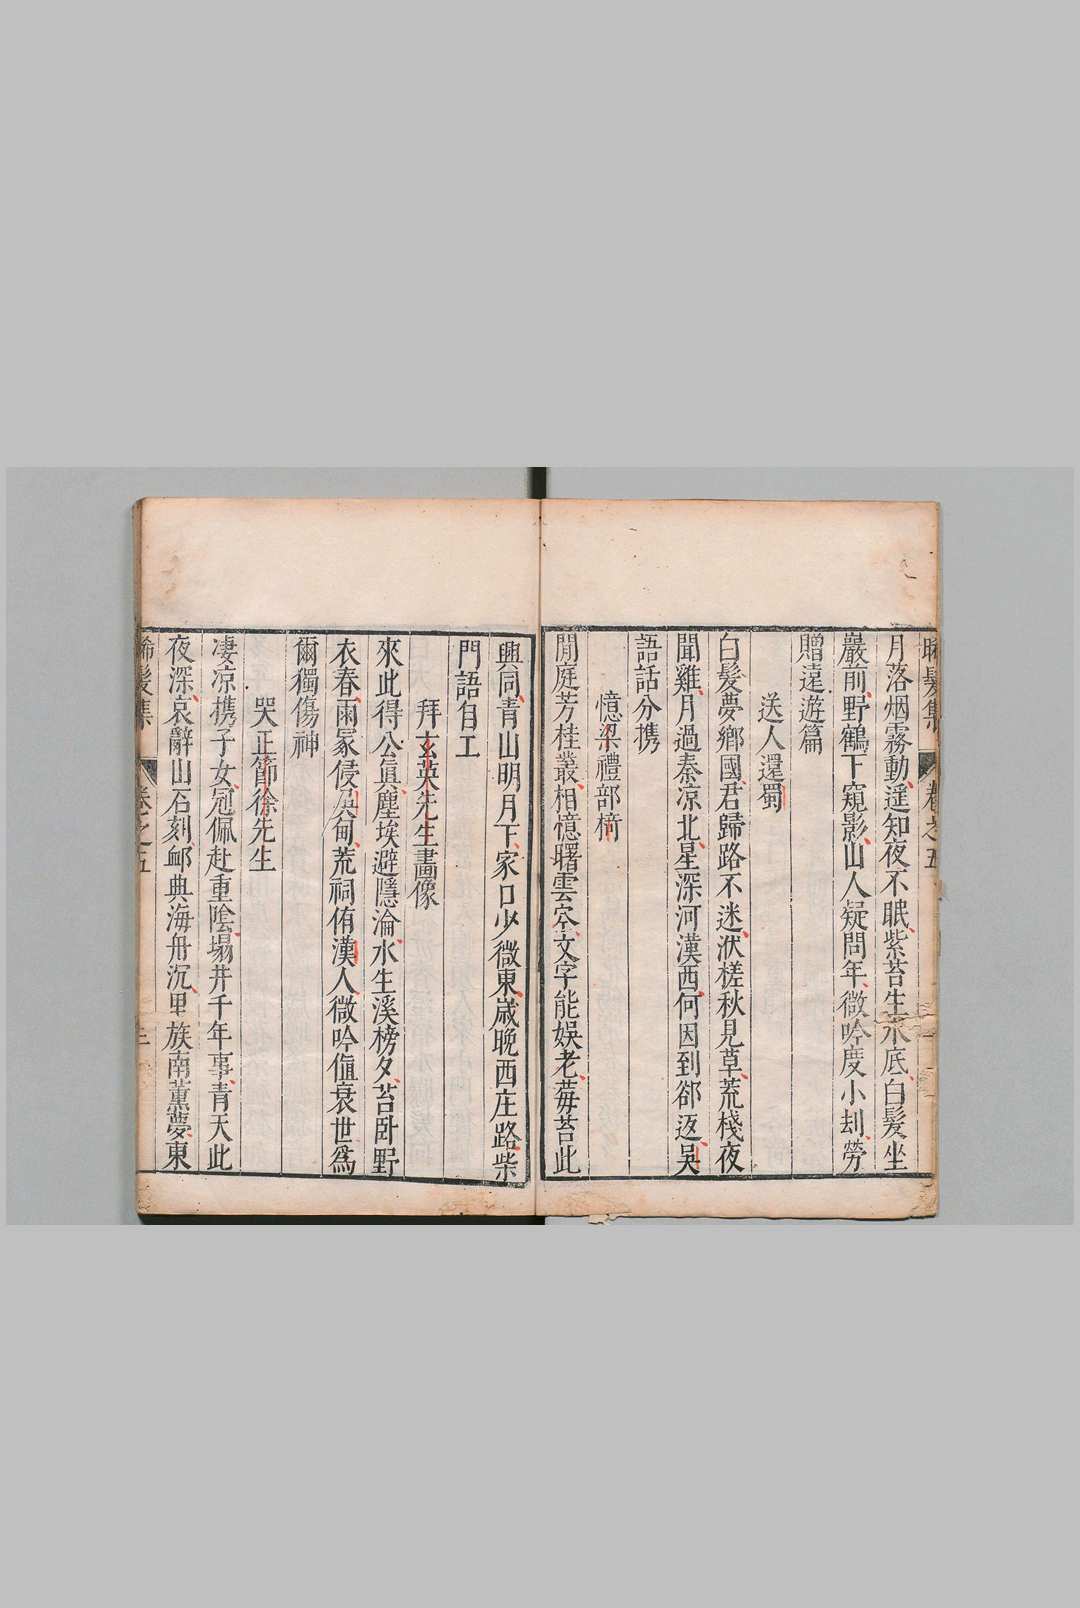 晞髮集 卷之五
月落烟霧動遥知夜不眠紫苔生水底白髮坐
巖前野鶴下窺影山人疑問年微吟度小刦勞
贈遠遊篇
送人還蜀
白髮夢鄉國君歸路不迷洑槎秋見草荒棧夜
聞雞月過秦凉北星深河漢西何因到邻返吳
語話分携
憶梁禮部椅
閒庭芳桂叢相憶曙雲空文字能娛老莓苔此
興同青山明月下家口少微東歲晚西庄路柴
門語自工
拜玄英先生畫像
來此得公真塵埃避隱淪水生溪榜夕苔卧野
衣春雨冢侵吳甸荒祠侑漢人微吟值衰世爲
爾獨傷神
哭正節徐先生
凄凉携子女冠佩赴重陰塲井千年事青天此
夜深哀辭山石刻邮典海舟沉里族南薰夢東
晞髮集 卷之五 三